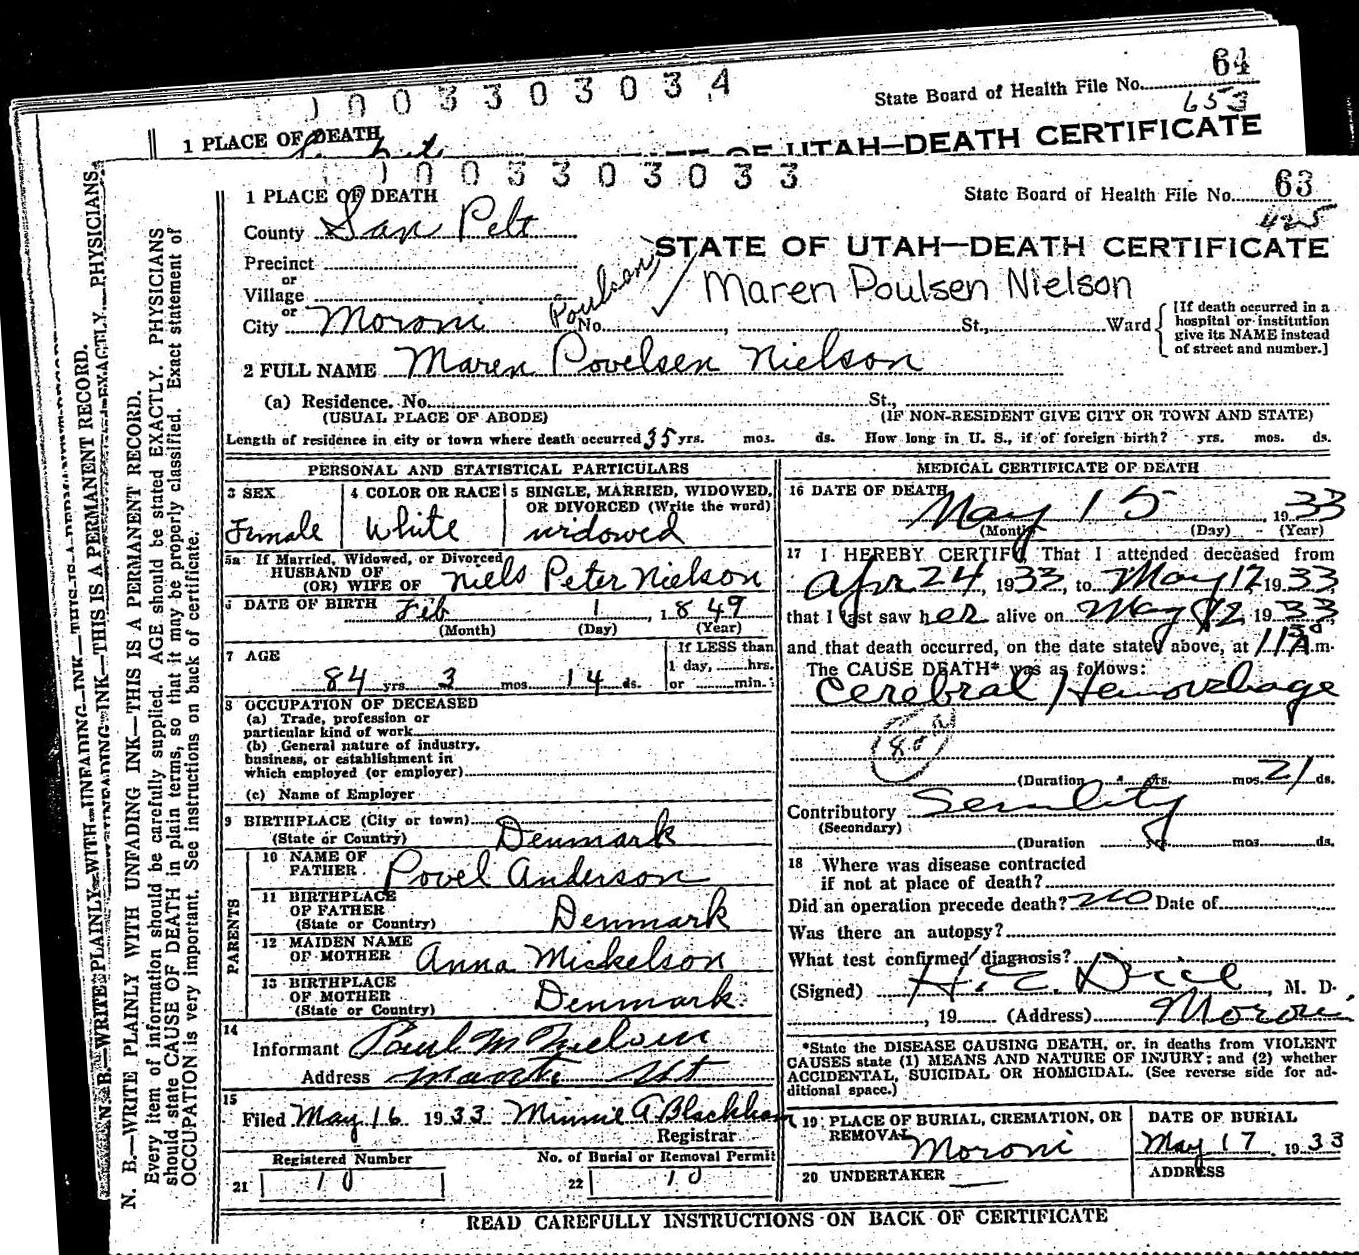 1003303034
State Board of Health File No. 64
653
1 PLACE OF DEATH
OF UTAH—DEATH CERTIFICATE
1003303033
1 PLACE OF DEATH
State Board of Health File No. 63
425
County San Pete
STATE OF UTAH—DEATH CERTIFICATE
Precinct
or
Poulsen
Maren Poulsen Nielson
Village
or
City Moroni
Poulsen
No. , St., Ward
[If death occurred in a hospital or institution give its NAME instead of street and number.]
2 FULL NAME Maren Povelsen Nielson
(a) Residence. No. St.,
(USUAL PLACE OF ABODE) (IF NON-RESIDENT GIVE CITY OR TOWN AND STATE)
Length of residence in city or town where death occurred 35 yrs. mos. ds. How long in U. S., if of foreign birth? yrs. mos. ds.
PERSONAL AND STATISTICAL PARTICULARS
3 SEX
Female
4 COLOR OR RACE
White
5 SINGLE, MARRIED, WIDOWED,
OR DIVORCED (Write the word)
widowed
5a If Married, Widowed, or Divorced
HUSBAND OF
(OR) WIFE OF Niels Peter Nielson
6 DATE OF BIRTH Feb 1, 1849
(Month) (Day) (Year)
7 AGE
84 yrs. 3 mos. 14 ds.
If LESS than
1 day, hrs.
or min.
8 OCCUPATION OF DECEASED
(a) Trade, profession or
particular kind of work
(b) General nature of industry,
business, or establishment in
which employed (or employer)
(c) Name of Employer
9 BIRTHPLACE (City or town)
(State or Country) Denmark
PARENTS
10 NAME OF
FATHER Povel Anderson
11 BIRTHPLACE
OF FATHER
(State or Country) Denmark
12 MAIDEN NAME
OF MOTHER Anna Mickelson
13 BIRTHPLACE
OF MOTHER
(State or Country) Denmark
14
Informant Paul M Nielson
Address Manti Ut
15
Filed May 16 1933 Minnie A Blackham
Registrar
Registered Number
21 10
No. of Burial or Removal Permit
22 10
MEDICAL CERTIFICATE OF DEATH
16 DATE OF DEATH
May 15, 1933
(Month) (Day) (Year)
17 I HEREBY CERTIFY That I attended deceased from
Apr 24, 1933, to May 12 1933,
that I last saw her alive on May 12, 1933,
and that death occurred, on the date stated above, at 11 A m.
The CAUSE DEATH* was as follows:
Cerebral Hemorrhage
(Duration yrs. mos. 21 ds.
Contributory Senility
(Secondary)
(Duration yrs. mos. ds.
18 Where was disease contracted
if not at place of death?
Did an operation precede death? no Date of
Was there an autopsy?
What test confirmed diagnosis?
(Signed) , M. D.
, 19 (Address) Moroni
*State the DISEASE CAUSING DEATH, or, in deaths from VIOLENT
CAUSES state (1) MEANS AND NATURE OF INJURY; and (2) whether
ACCIDENTAL, SUICIDAL OR HOMICIDAL. (See reverse side for ad-
ditional space.)
19 PLACE OF BURIAL, CREMATION, OR
REMOVAL
Moroni
DATE OF BURIAL
May 17, 1933
20 UNDERTAKER
ADDRESS
READ CAREFULLY INSTRUCTIONS ON BACK OF CERTIFICATE
N. B.—WRITE PLAINLY WITH UNFADING INK—THIS IS A PERMANENT RECORD.
Every item of information should be carefully supplied. AGE should be stated EXACTLY. PHYSICIANS
should state CAUSE OF DEATH in plain terms, so that it may be properly classified. Exact statement of
OCCUPATION is very important. See instructions on back of certificate.